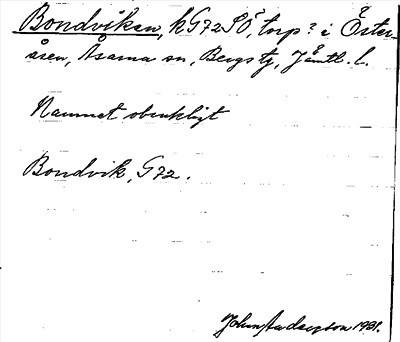 Bondviken, k G72SÖ, torp? i Öster-
åsen, Åsarna sn, Bergs tg, Jämtl. l.
Namnet obrukligt
Bondvik, G72.
John 1931.